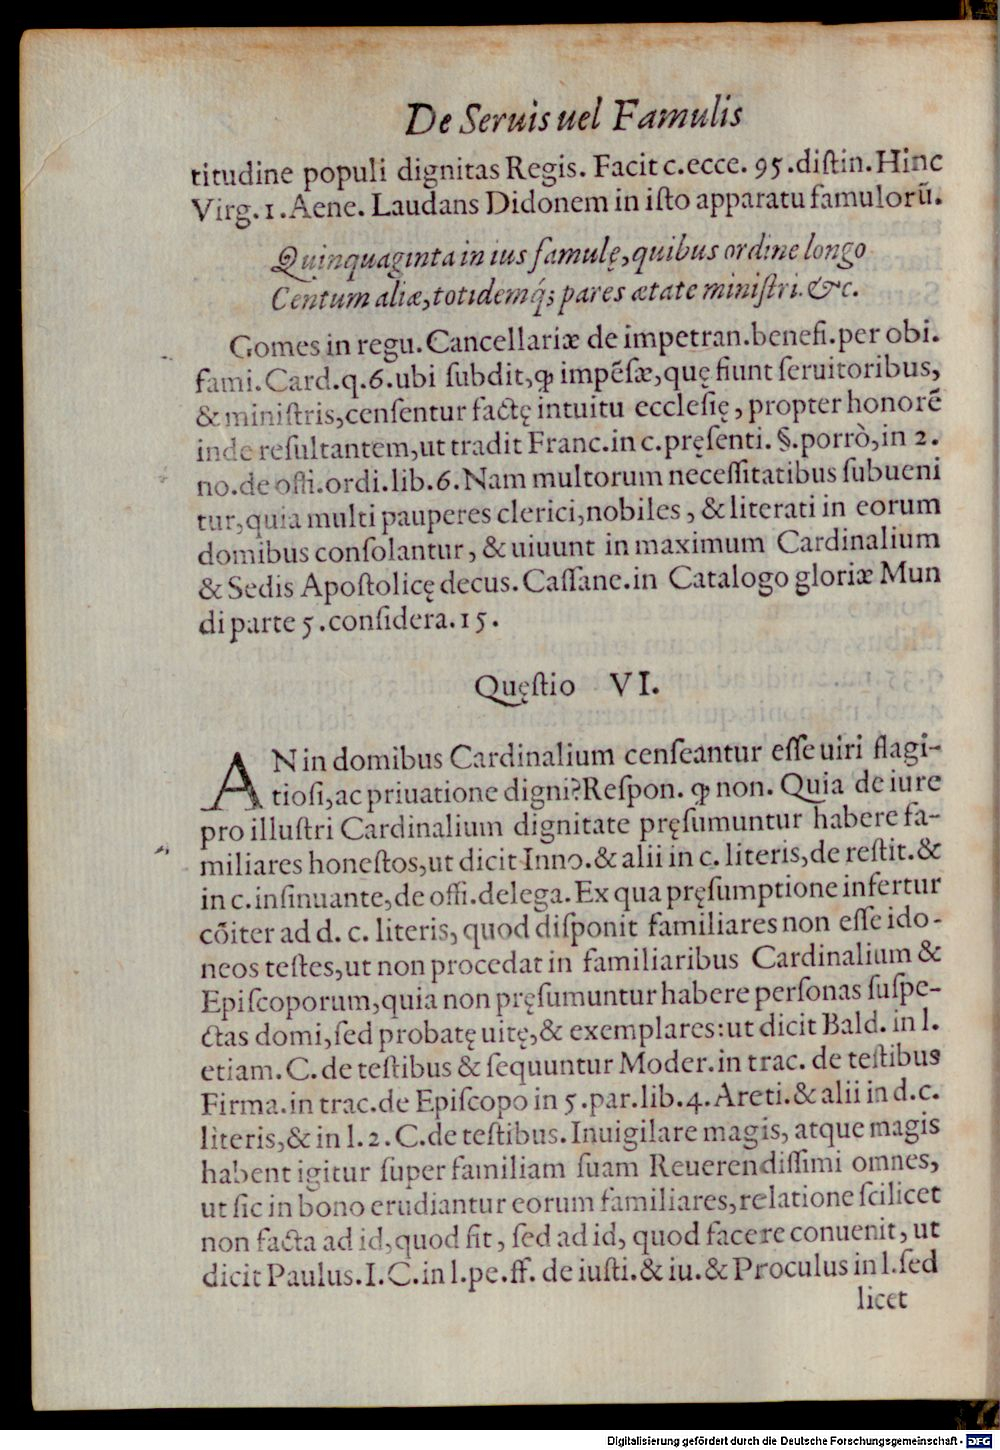 De Seruis uel Famulis
titudine populi dignitas Regis. Facit c.ecce. 95.distin. Hinc
Virg. 1. Aene. Laudans Didonem in isto apparatu famulorũ.
Quinquaginta in ius famulę, quibus ordine longo
Centum aliæ, totidemq́; pares ætate ministri. &c.
Gomes in regu. Cancellariæ de impetran. benefi. per obi.
fami. Card. q. 6. ubi subdit, ꝙ impẽsæ, quę fiunt seruitoribus,
& ministris, censentur factę intuitu ecclesię, propter honorẽ
inde resultantem, ut tradit Franc. in c. pręsenti. §. porrò, in 2.
no. de offi. ordi. lib. 6. Nam multorum necessitatibus subueni
tur, quia multi pauperes clerici, nobiles, & literati in eorum
domibus consolantur, & uiuunt in maximum Cardinalium
& Sedis Apostolicę decus. Cassane. in Catalogo gloriæ Mun
di parte 5. considera. 15.
Quęstio VI.
AN in domibus Cardinalium censeantur esse uiri flagi-
tiosi, ac priuatione digni? Respon. ꝙ non. Quia de iure
pro illustri Cardinalium dignitate pręsumuntur habere fa-
miliares honestos, ut dicit Inno. & alii in c. literis, de restit. &
in c. insinuante, de offi. delega. Ex qua pręsumptione infertur
cõiter ad d. c. literis, quod disponit familiares non esse ido-
neos testes, ut non procedat in familiaribus Cardinalium &
Episcoporum, quia non pręsumuntur habere personas suspe-
ctas domi, sed probatę uitę, & exemplares: ut dicit Bald. in l.
etiam. C. de testibus & sequuntur Moder. in trac. de testibus
Firma. in trac. de Episcopo in 5. par. lib. 4. Areti. & alii in d. c.
literis, & in l. 2. C. de testibus. Inuigilare magis, atque magis
habent igitur super familiam suam Reuerendissimi omnes,
ut sic in bono erudiantur eorum familiares, relatione scilicet
non facta ad id, quod fit, sed ad id, quod facere conuenit, ut
dicit Paulus. I. C. in l. pe. ff. de iusti. & iu. & Proculus in l. sed
licet
Digitalisierung gefördert durch die Deutsche Forschungsgemeinschaft - DFG